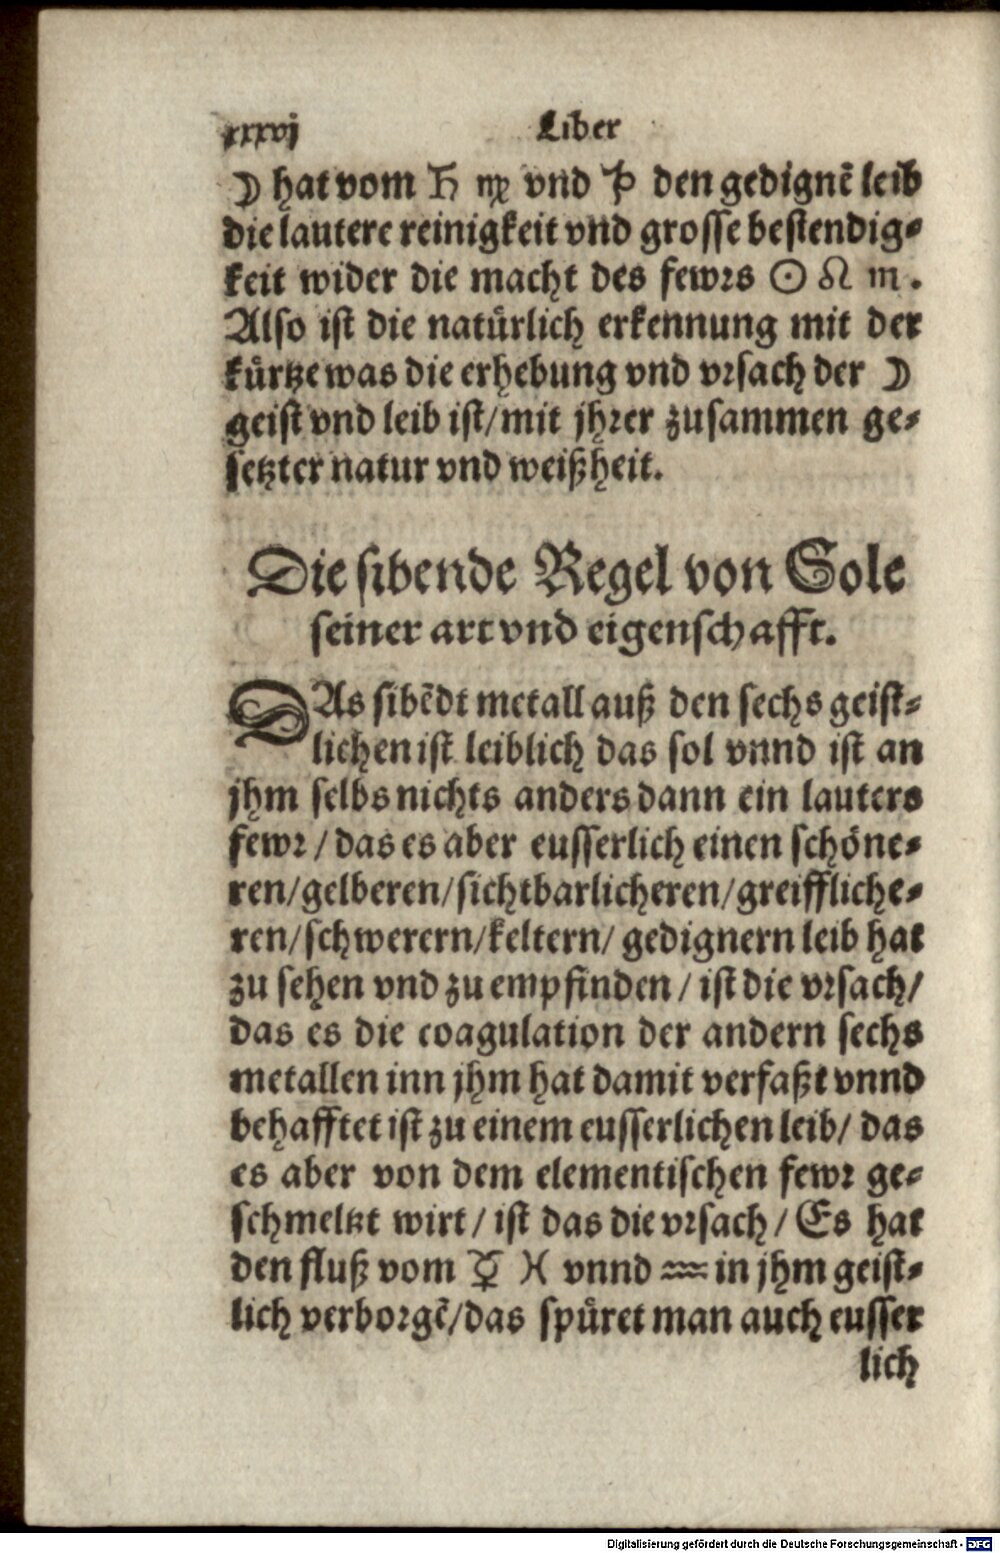 xxxvj Liber
☽ hat vom ♄ ♍ vnd ♃ den gedignẽ leib
die lautere reinigkeit vnd grosse bestendig⸗
keit wider die macht des fewrs ☉ ♌ ♏.
Also ist die natürlich erkennung mit der
kürtze was die erhebung vnd vrsach der ☽
geist vnd leib ist/mit jhrer zusammen ge⸗
setzter natur vnd weißheit.
Die sibende Regel von Sole
seiner art vnd eigenschafft.
DAs sibẽdt metall auß den sechs geist⸗
lichen ist leiblich das sol vnnd ist an
jhm selbs nichts anders dann ein lauters
fewr / das es aber eusserlich einen schöne⸗
ren/gelberen/sichtbarlicheren/greiffliche⸗
ren/schwerern/keltern/ gedignern leib hat
zu sehen vnd zu empfinden / ist die vrsach/
das es die coagulation der andern sechs
metallen inn jhm hat damit verfaßt vnnd
behafftet ist zu einem eusserlichen leib/ das
es aber von dem elementischen fewr ge⸗
schmeltzt wirt / ist das die vrsach / Es hat
den fluß vom ☿ ♓ vnnd ♒ in jhm geist⸗
lich verborgẽ/das spüret man auch eusser
lich
Digitalisierung gefördert durch die Deutsche Forschungsgemeinschaft - DFG